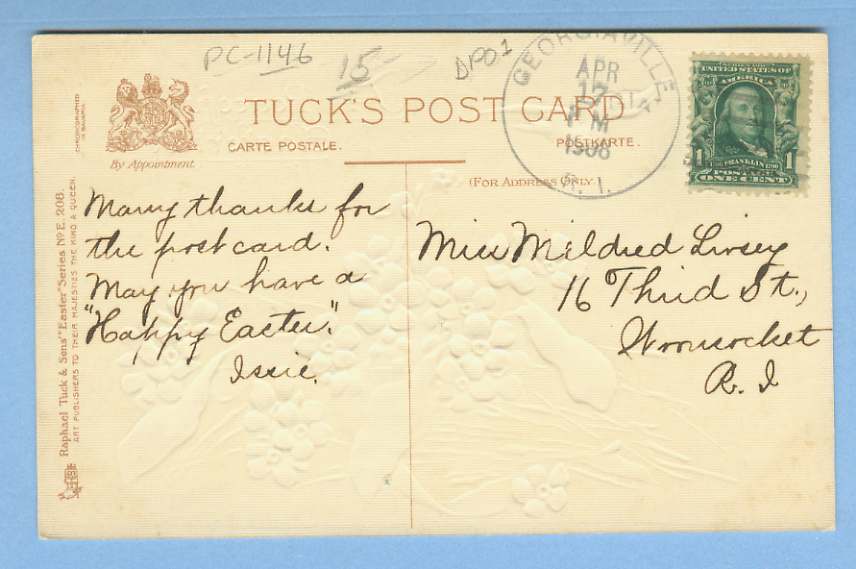 PC-1146
15
DPO1
GEORGIAVILLE
APR
17
PM
1908
R. I.
UNITED STATES OF
AMERICA
FRANKLIN
1 1
POSTAGE
ONE CENT
By Appointment.
TUCK'S POST CARD
CARTE POSTALE.
POSTKARTE.
(FOR ADDRESS ONLY.)
CHROMOGRAPHED
IN BAVARIA
Raphael Tuck & Sons' "Easter" Series No E. 208.
ART PUBLISHERS TO THEIR MAJESTIES THE KING & QUEEN.
Many thanks for
the post card.
May you have a
"Happy Easter."
Issie.
Miss Mildred Livsey
16 Third St.,
Woonsocket
R. I